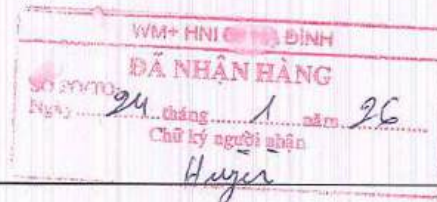 WM+ HNI ĐÌNH
ĐÃ NHẬN HÀNG
Ngày 24 tháng 1 năm 26
Chữ ký người nhận
Huyền